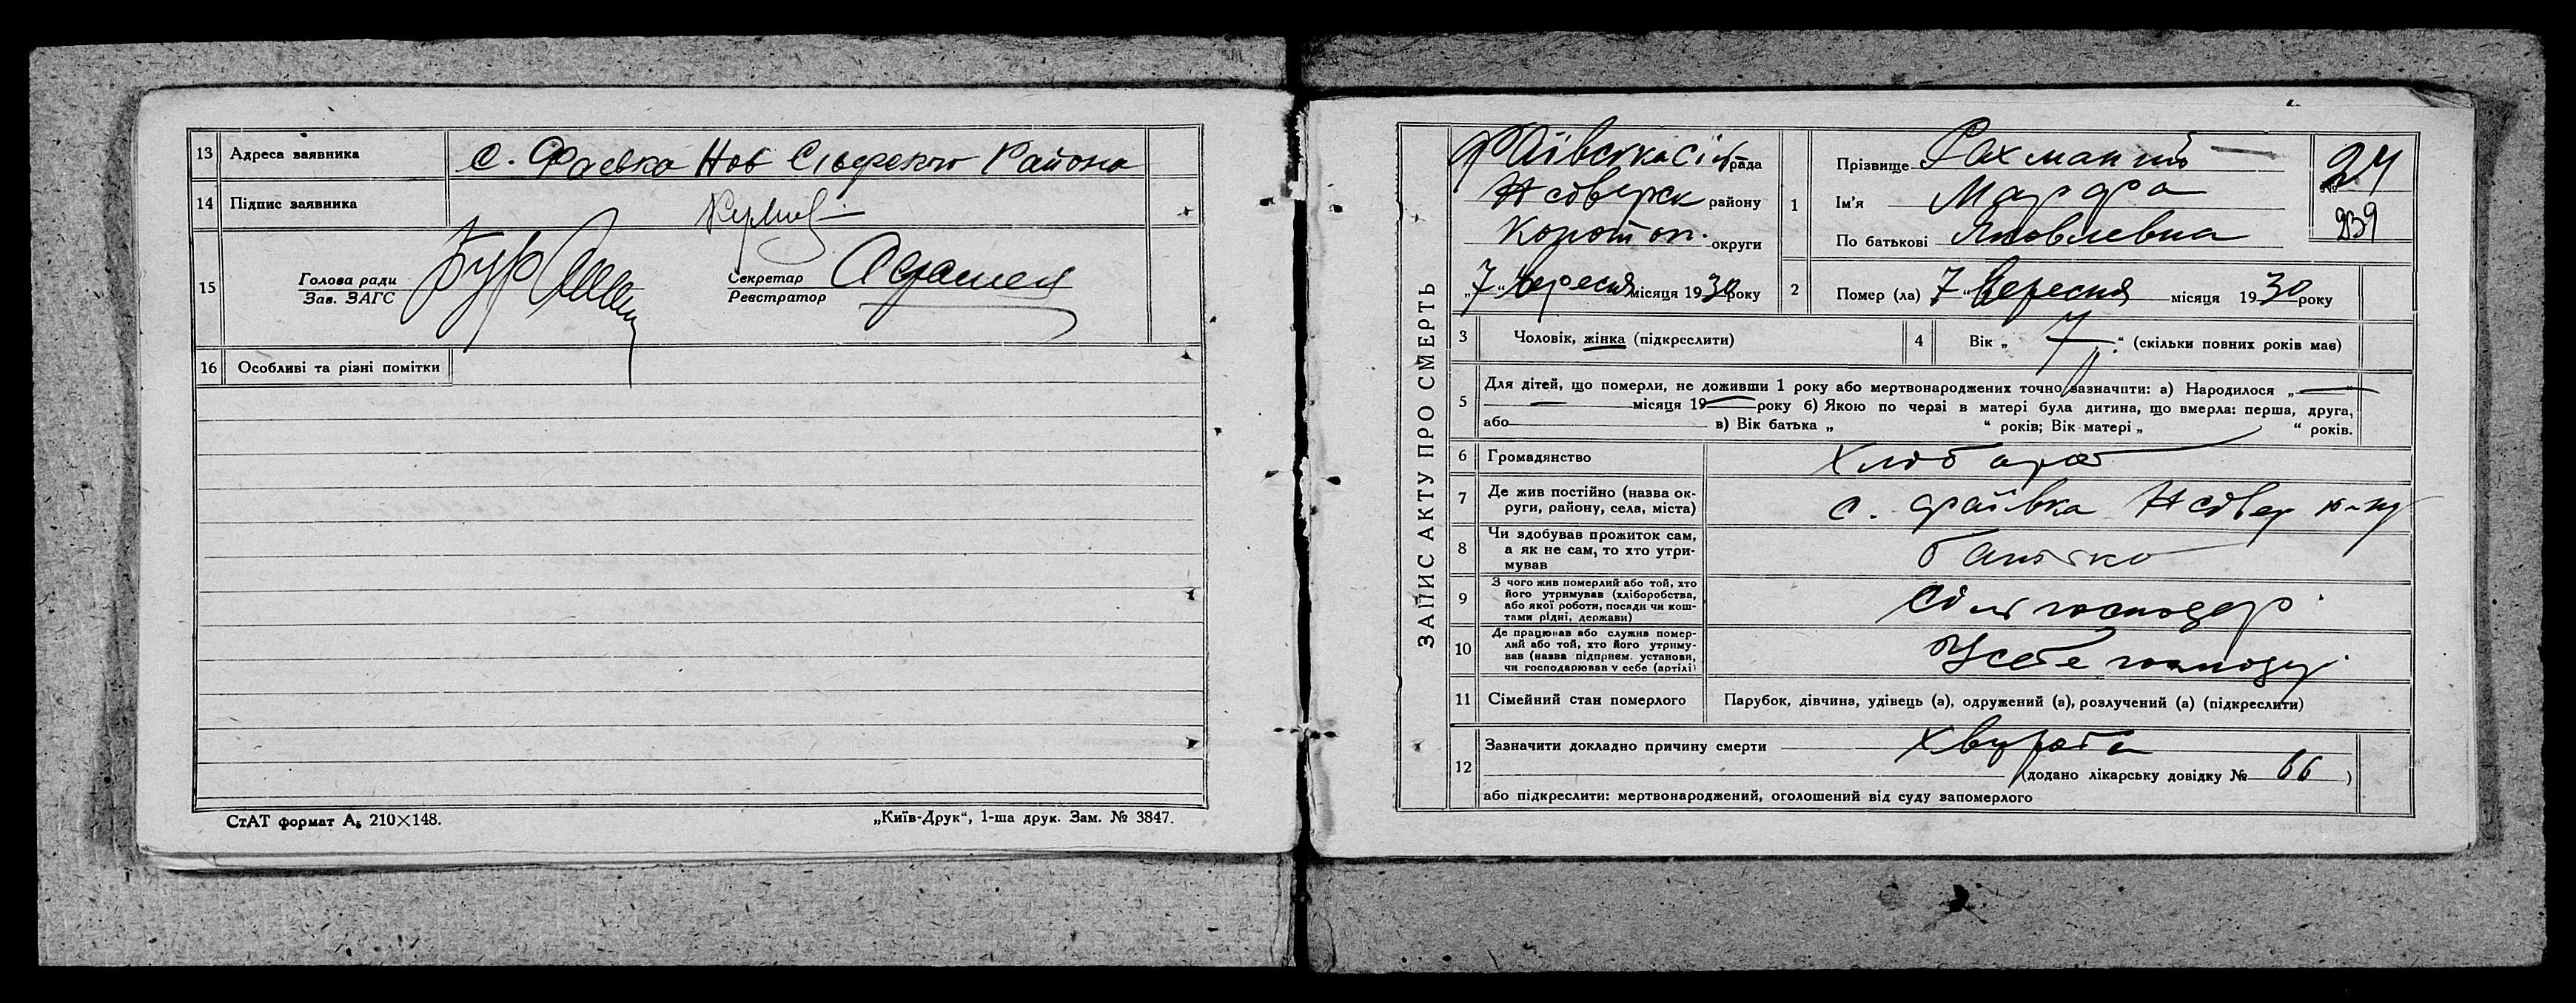 13 Адреса заявника с. Фаевка Нов Сіверского Района
14 Підпис заявника
15 Голова ради
Зав. ЗАГС
Секретар
Реєстратор
16 Особливі та різні помітки
СтАТ формат А5 210×148.
„Київ-Друк“, 1-ша друк. Зам. № 3847.
ЗАПИС АКТУ ПРО СМЕРТЬ
Фаївська сіль рада
Нсіверск району
Конотоп. округи
„7“ Вересня місяця 1930 року
1 Прізвище Рахманий
Ім'я Марфа
По батькові Яковлевна
№ 24
239
2 Помер (ла) 7 „Вересня місяця 1930 року
3 Чоловік, жінка (підкреслити)
4 Вік „ 7 “ (скільки повних років має)
5 Для дітей, що померли, не доживши 1 року або мертвонароджених точно зазначити: а) Народилося „ — “
— місяця 19— року б) Якою по черзі в матері була дитина, що вмерла: перша, друга,
або в) Вік батька „ “ років; Вік матері „ “ років.
6 Громадянство хлібороб
7 Де жив постійно (назва ок-
руги, району, села, міста) с. Фаївка Нсівер р-ну
8 Чи здобував прожиток сам,
а як не сам, то хто утри-
мував батько
9 З чого жив померлий або той, хто
його утримував (хліборобства,
або якої роботи, посади чи кош-
тами рідні, держави) сільгосподар.
10 Де працював або служив помер-
лий або той, хто його утриму-
вав (назва підприєм. установи,
чи господарював у себе (артілі) У себе господар.
11 Сімейний стан померлого Парубок, дівчина, удівець (а), одружений (а), розлучений (а) (підкреслити)
12 Зазначити докладно причину смерти хвороба
(додано лікарську довідку № 66 )
або підкреслити: мертвонароджений, оголошений від суду запомерлого